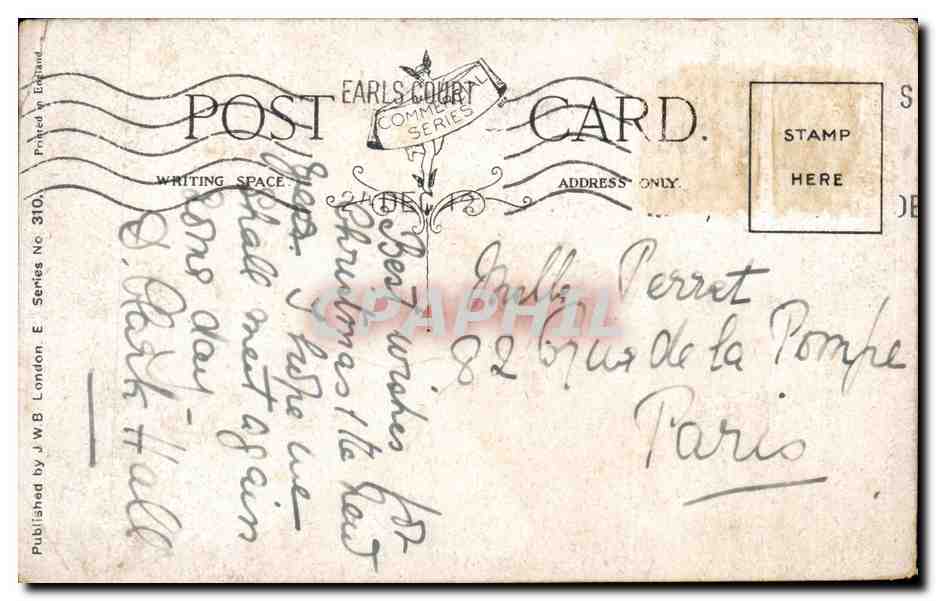 POST CARD.
EARLS COURT
COMMERCIAL
SERIES
WRITING SPACE.
ADDRESS ONLY.
24 DEC 12
STAMP
HERE
Published by J W B London. E. Series No 310. Printed in England
Best wishes for
Christmas & the next
year. I hope we
shall meet again
some day
D. Clark Hall
Mlle Perret
82 rue de la Pompe
Paris
CPAPHIL